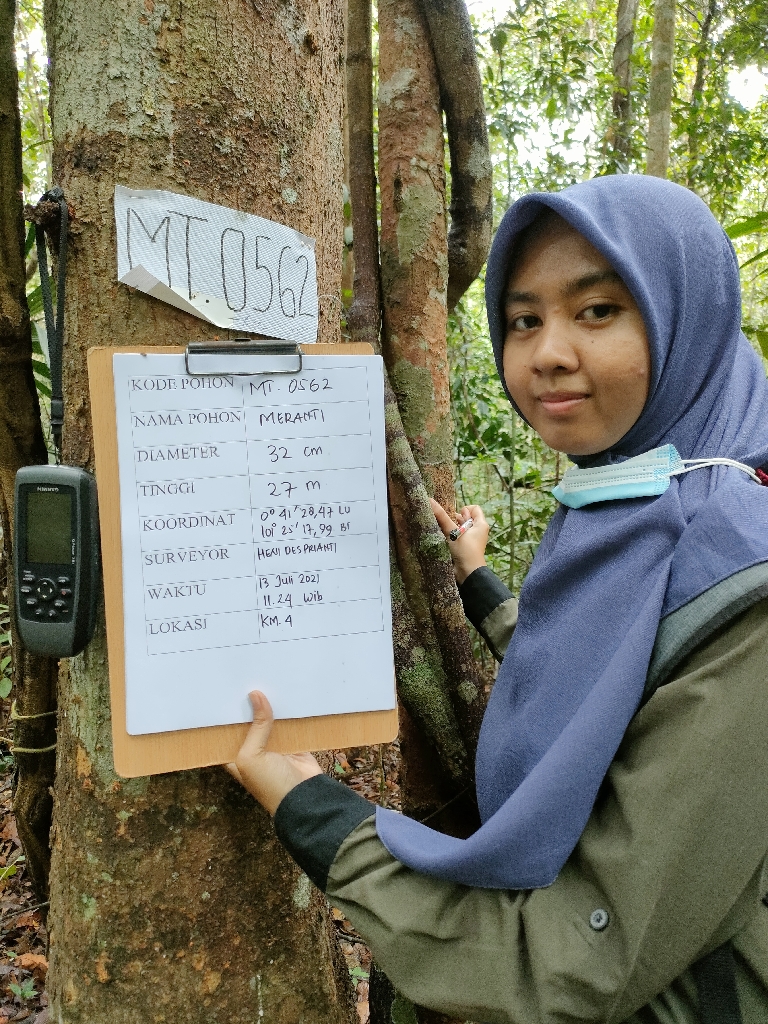 MT. 0562
KODE POHON MT. 0562
NAMA POHON MERANTI
DIAMETER 32 cm
TINGGI 27 m
KOORDINAT 0° 41' 28,47 LU
101° 25' 17,99 BT
SURVEYOR HENI DESPRIANTI
WAKTU 13 Juli 2021
11.24 Wib
LOKASI KM. 4